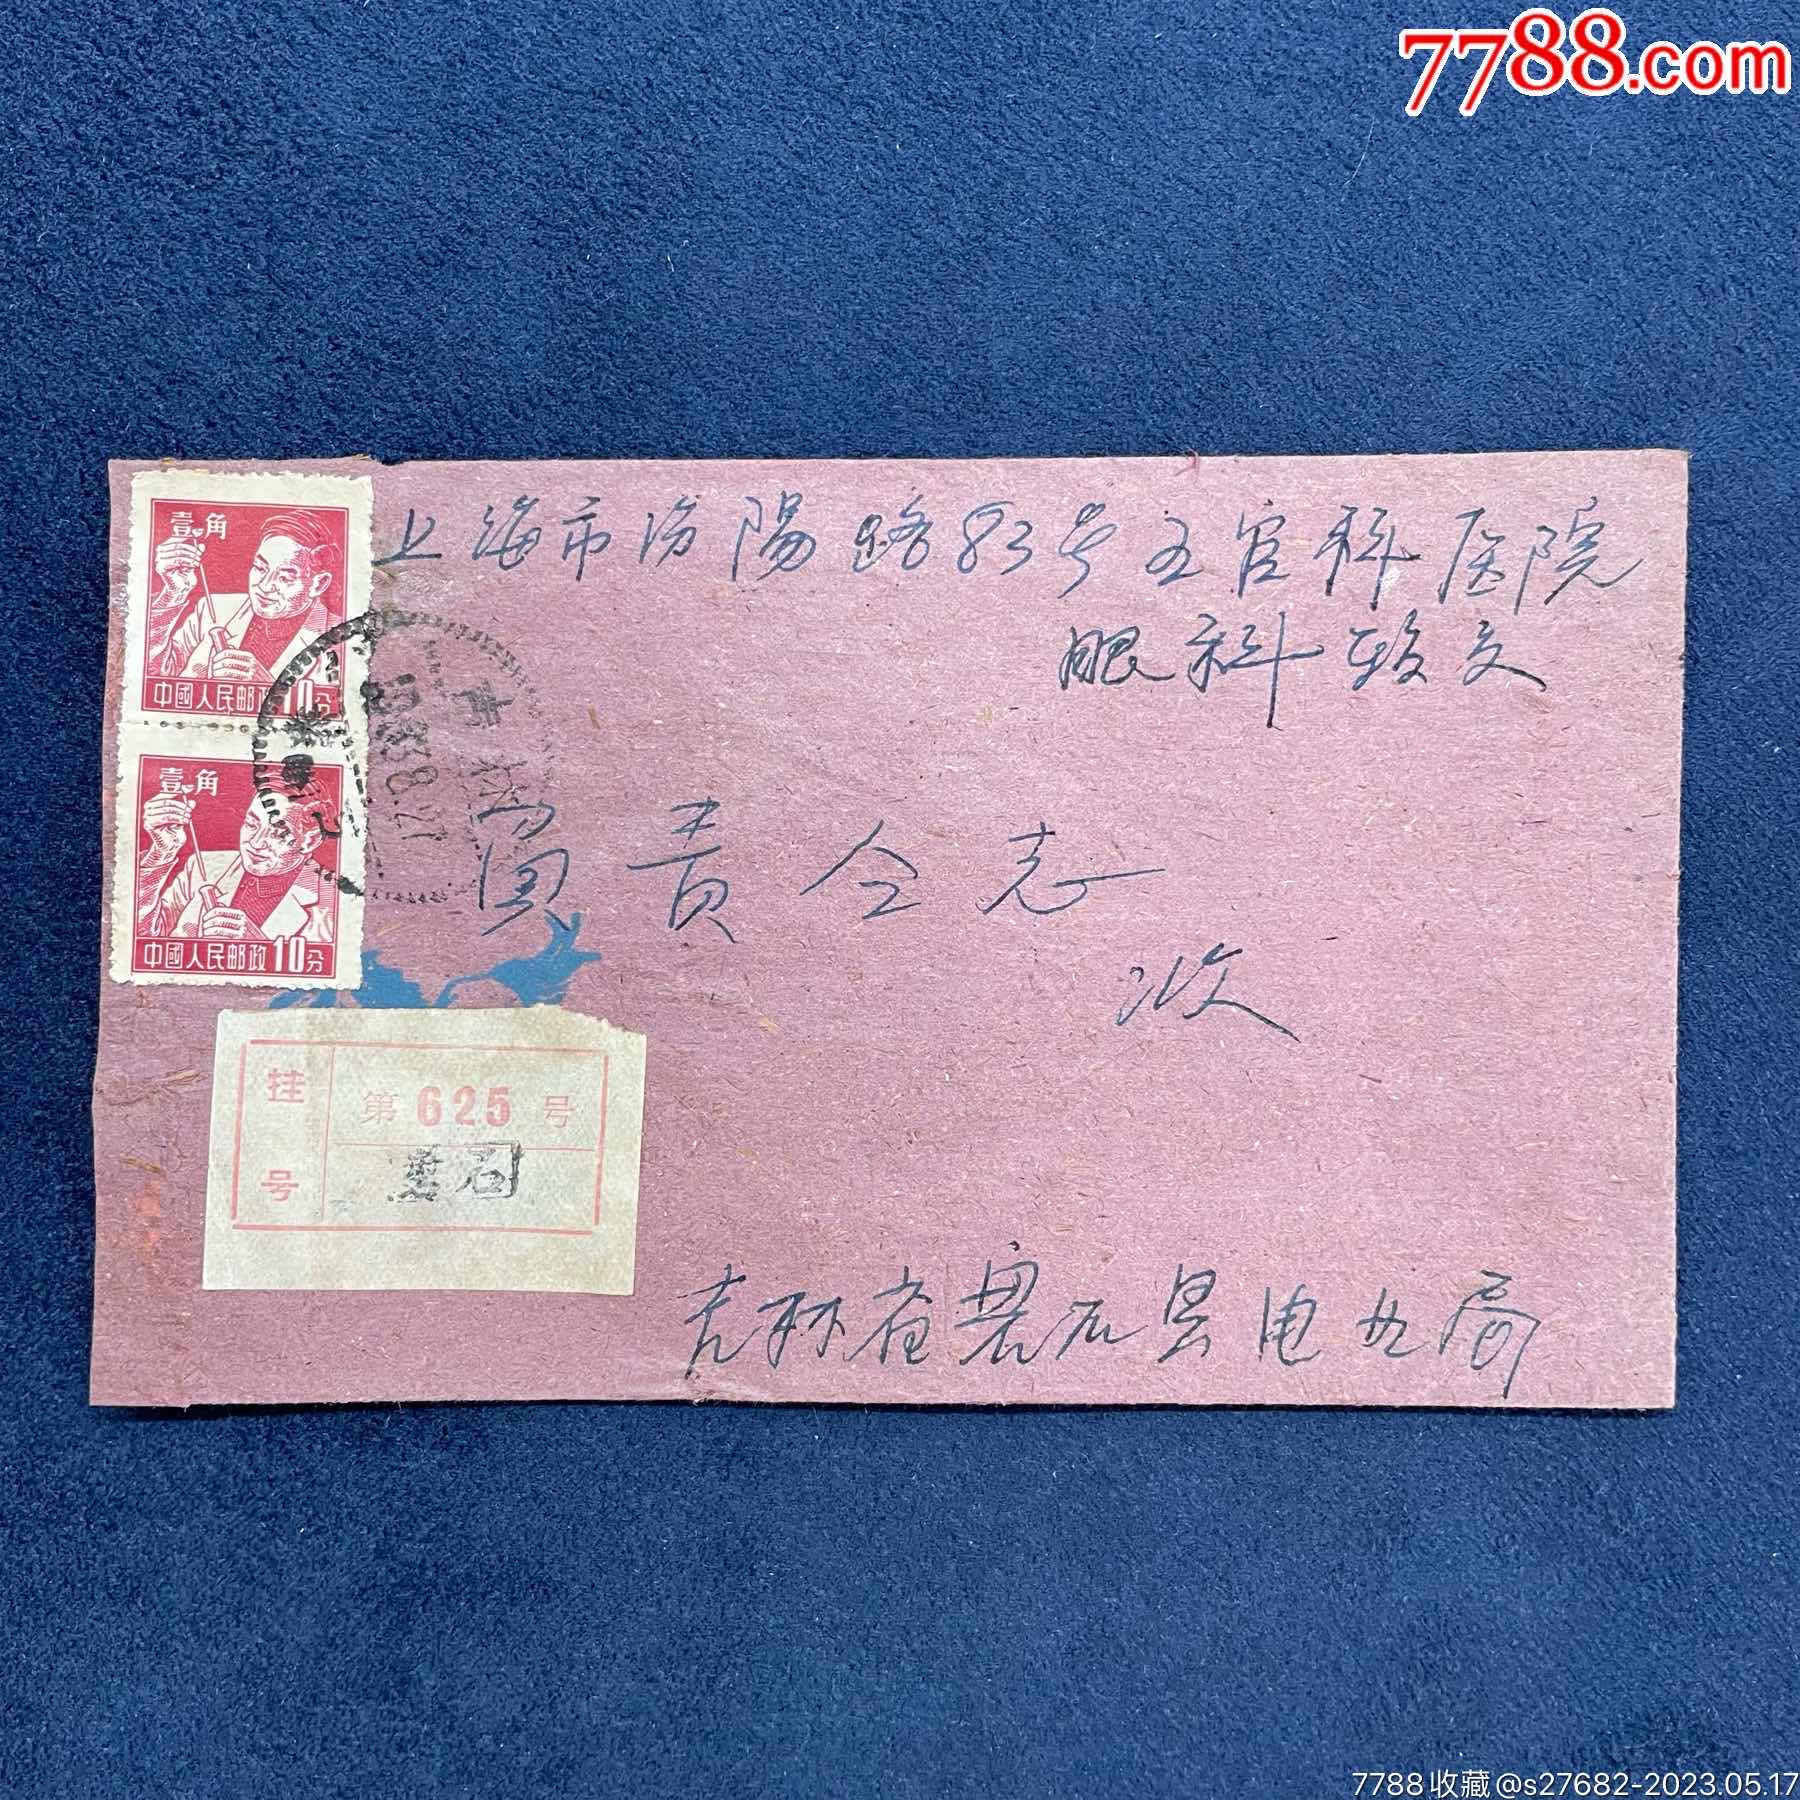 7788.com
壹角
中國人民邮政10分
壹角
中國人民邮政10分
上海市汾陽路83号五官科医院
眼科转交
责仝志
收
挂号
第625号
磐石
吉林省磐石县电业局
吉林
7788收藏@s27682-2023.05.17